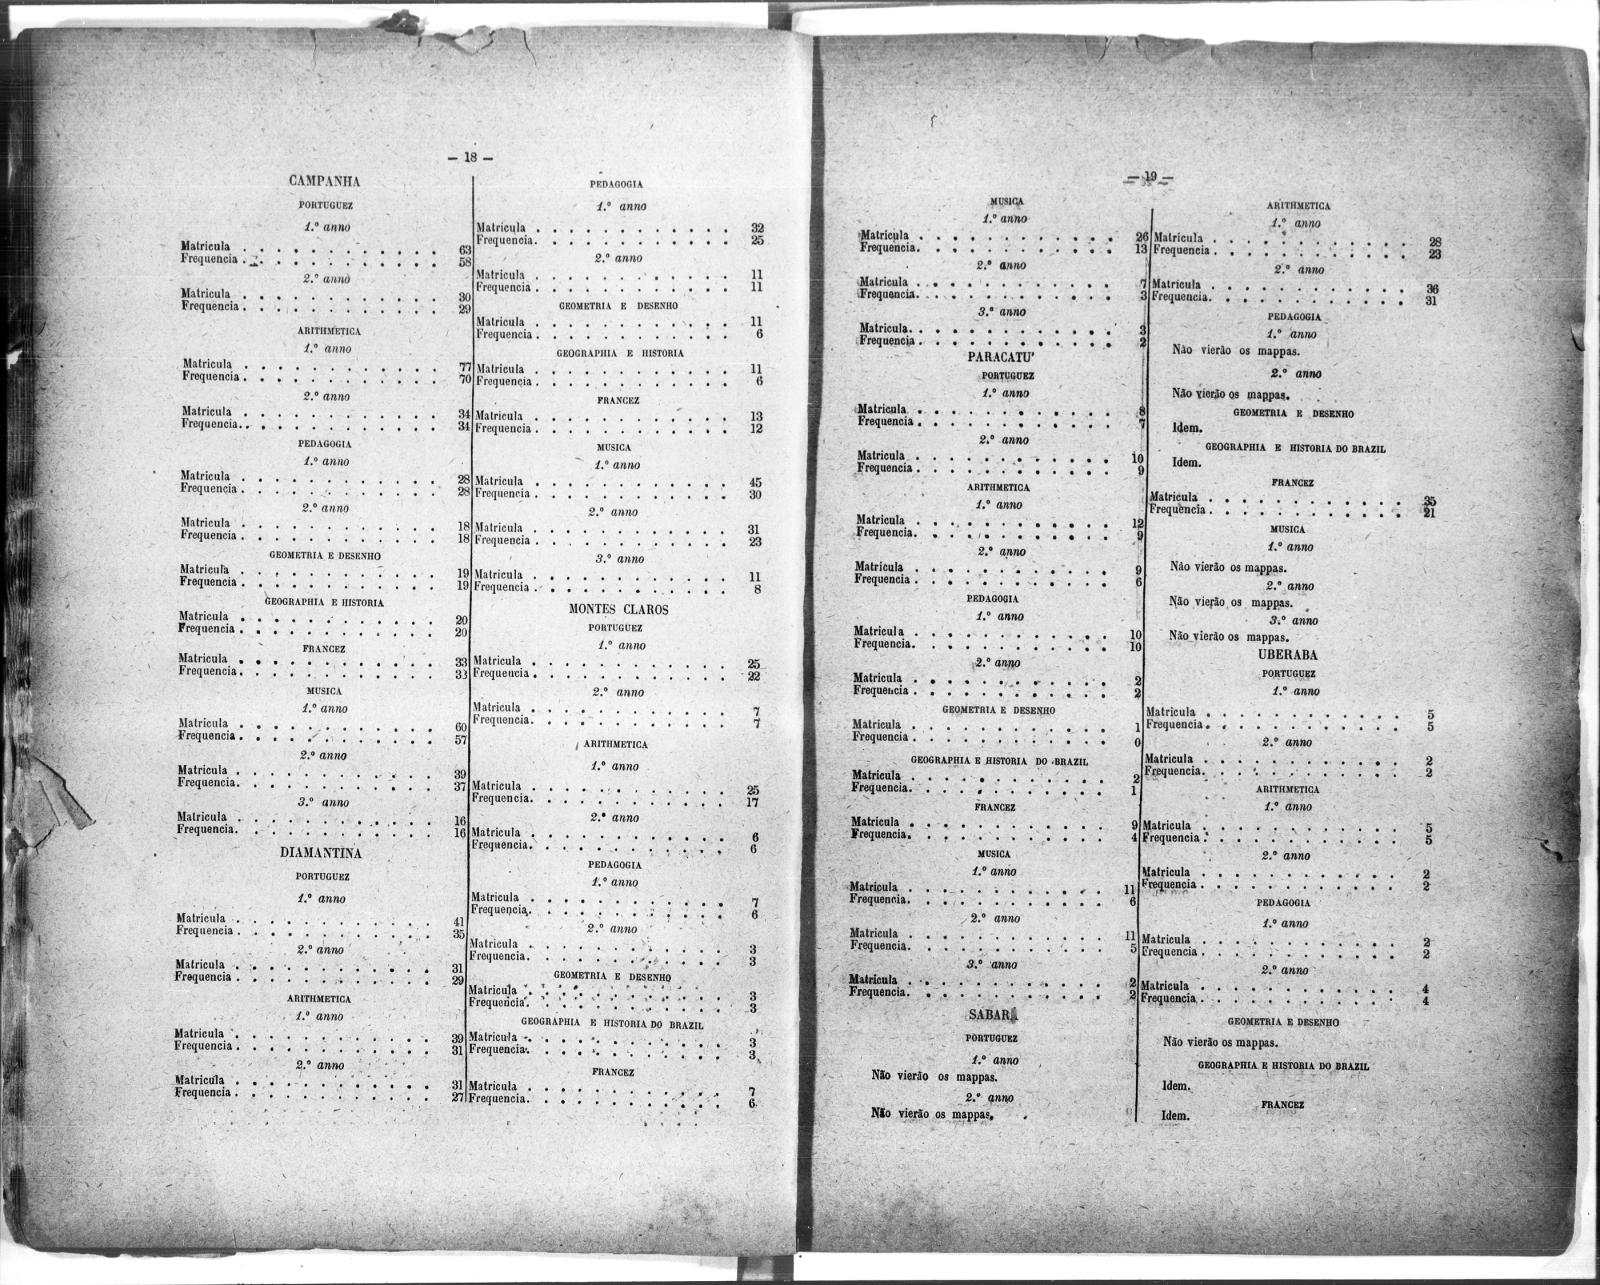 — 18 —
CAMPANHA
PORTUGUEZ
1.º anno
Matricula . . . . . . . . . . . 63
Frequencia . . . . . . . . . . . 58
2.º anno
Matricula . . . . . . . . . . . 30
Frequencia . . . . . . . . . . . 29
ARITHMETICA
1.º anno
Matricula . . . . . . . . . . . 77
Frequencia . . . . . . . . . . . 70
2.º anno
Matricula . . . . . . . . . . . 34
Frequencia . . . . . . . . . . . 34
PEDAGOGIA
1.º anno
Matricula . . . . . . . . . . . 28
Frequencia . . . . . . . . . . . 28
2.º anno
Matricula . . . . . . . . . . . 18
Frequencia . . . . . . . . . . . 18
GEOMETRIA E DESENHO
Matricula . . . . . . . . . . . 19
Frequencia . . . . . . . . . . . 19
GEOGRAPHIA E HISTORIA
Matricula . . . . . . . . . . . 20
Frequencia . . . . . . . . . . . 20
FRANCEZ
Matricula . . . . . . . . . . . 33
Frequencia . . . . . . . . . . . 33
MUSICA
1.º anno
Matricula . . . . . . . . . . . 60
Frequencia . . . . . . . . . . . 57
2.º anno
Matricula . . . . . . . . . . . 39
Frequencia . . . . . . . . . . . 37
3.º anno
Matricula . . . . . . . . . . . 16
Frequencia . . . . . . . . . . . 16
DIAMANTINA
PORTUGUEZ
1.º anno
Matricula . . . . . . . . . . . 41
Frequencia . . . . . . . . . . . 35
2.º anno
Matricula . . . . . . . . . . . 31
Frequencia . . . . . . . . . . . 29
ARITHMETICA
1.º anno
Matricula . . . . . . . . . . . 39
Frequencia . . . . . . . . . . . 31
2.º anno
Matricula . . . . . . . . . . . 31
Frequencia . . . . . . . . . . . 27
PEDAGOGIA
1.º anno
Matricula . . . . . . . . . . . 32
Frequencia . . . . . . . . . . . 25
2.º anno
Matricula . . . . . . . . . . . 11
Frequencia . . . . . . . . . . . 11
GEOMETRIA E DESENHO
Matricula . . . . . . . . . . . 11
Frequencia . . . . . . . . . . . 6
GEOGRAPHIA E HISTORIA
Matricula . . . . . . . . . . . 11
Frequencia . . . . . . . . . . . 6
FRANCEZ
Matricula . . . . . . . . . . . 13
Frequencia . . . . . . . . . . . 12
MUSICA
1.º anno
Matricula . . . . . . . . . . . 45
Frequencia . . . . . . . . . . . 30
2.º anno
Matricula . . . . . . . . . . . 31
Frequencia . . . . . . . . . . . 23
3.º anno
Matricula . . . . . . . . . . . 11
Frequencia . . . . . . . . . . . 8
MONTES CLAROS
PORTUGUEZ
1.º anno
Matricula . . . . . . . . . . . 25
Frequencia . . . . . . . . . . . 22
2.º anno
Matricula . . . . . . . . . . . 7
Frequencia . . . . . . . . . . . 7
ARITHMETICA
1.º anno
Matricula . . . . . . . . . . . 25
Frequencia . . . . . . . . . . . 17
2.º anno
Matricula . . . . . . . . . . . 6
Frequencia . . . . . . . . . . . 6
PEDAGOGIA
1.º anno
Matricula . . . . . . . . . . . 7
Frequencia . . . . . . . . . . . 6
2.º anno
Matricula . . . . . . . . . . . 3
Frequencia . . . . . . . . . . . 3
GEOMETRIA E DESENHO
Matricula . . . . . . . . . . . 3
Frequencia . . . . . . . . . . . 3
GEOGRAPHIA E HISTORIA DO BRAZIL
Matricula . . . . . . . . . . . 3
Frequencia . . . . . . . . . . . 3
FRANCEZ
Matricula . . . . . . . . . . . 7
Frequencia . . . . . . . . . . . 6
— 19 —
MUSICA
1.º anno
Matricula . . . . . . . . . . . 26
Frequencia . . . . . . . . . . . 13
2.º anno
Matricula . . . . . . . . . . . 7
Frequencia . . . . . . . . . . . 3
3.º anno
Matricula . . . . . . . . . . . 3
Frequencia . . . . . . . . . . . 2
PARACATU'
PORTUGUEZ
1.º anno
Matricula . . . . . . . . . . . 8
Frequencia . . . . . . . . . . . 7
2.º anno
Matricula . . . . . . . . . . . 10
Frequencia . . . . . . . . . . . 9
ARITHMETICA
1.º anno
Matricula . . . . . . . . . . . 12
Frequencia . . . . . . . . . . . 9
2.º anno
Matricula . . . . . . . . . . . 9
Frequencia . . . . . . . . . . . 6
PEDAGOGIA
1.º anno
Matricula . . . . . . . . . . . 10
Frequencia . . . . . . . . . . . 10
2.º anno
Matricula . . . . . . . . . . . 2
Frequencia . . . . . . . . . . . 2
GEOMETRIA E DESENHO
Matricula . . . . . . . . . . . 1
Frequencia . . . . . . . . . . . 0
GEOGRAPHIA E HISTORIA DO BRAZIL
Matricula . . . . . . . . . . . 2
Frequencia . . . . . . . . . . . 1
FRANCEZ
Matricula . . . . . . . . . . . 9
Frequencia . . . . . . . . . . . 4
MUSICA
1.º anno
Matricula . . . . . . . . . . . 11
Frequencia . . . . . . . . . . . 6
2.º anno
Matricula . . . . . . . . . . . 11
Frequencia . . . . . . . . . . . 5
3.º anno
Matricula . . . . . . . . . . . 2
Frequencia . . . . . . . . . . . 2
SABARÁ
PORTUGUEZ
1.º anno
Não vierão os mappas.
2.º anno
Não vierão os mappas.
ARITHMETICA
1.º anno
Matricula . . . . . . . . . . . 28
Frequencia . . . . . . . . . . . 23
2.º anno
Matricula . . . . . . . . . . . 36
Frequencia . . . . . . . . . . . 31
PEDAGOGIA
1.º anno
Não vierão os mappas.
2.º anno
Não vierão os mappas.
GEOMETRIA E DESENHO
Idem.
GEOGRAPHIA E HISTORIA DO BRAZIL
Idem.
FRANCEZ
Matricula . . . . . . . . . . . 35
Frequencia . . . . . . . . . . . 21
MUSICA
1.º anno
Não vierão os mappas.
2.º anno
Não vierão os mappas.
3.º anno
Não vierão os mappas.
UBERABA
PORTUGUEZ
1.º anno
Matricula . . . . . . . . . . . 5
Frequencia . . . . . . . . . . . 5
2.º anno
Matricula . . . . . . . . . . . 2
Frequencia . . . . . . . . . . . 2
ARITHMETICA
1.º anno
Matricula . . . . . . . . . . . 5
Frequencia . . . . . . . . . . . 5
2.º anno
Matricula . . . . . . . . . . . 2
Frequencia . . . . . . . . . . . 2
PEDAGOGIA
1.º anno
Matricula . . . . . . . . . . . 2
Frequencia . . . . . . . . . . . 2
2.º anno
Matricula . . . . . . . . . . . 4
Frequencia . . . . . . . . . . . 4
GEOMETRIA E DESENHO
Não vierão os mappas.
GEOGRAPHIA E HISTORIA DO BRAZIL
Idem.
FRANCEZ
Idem.